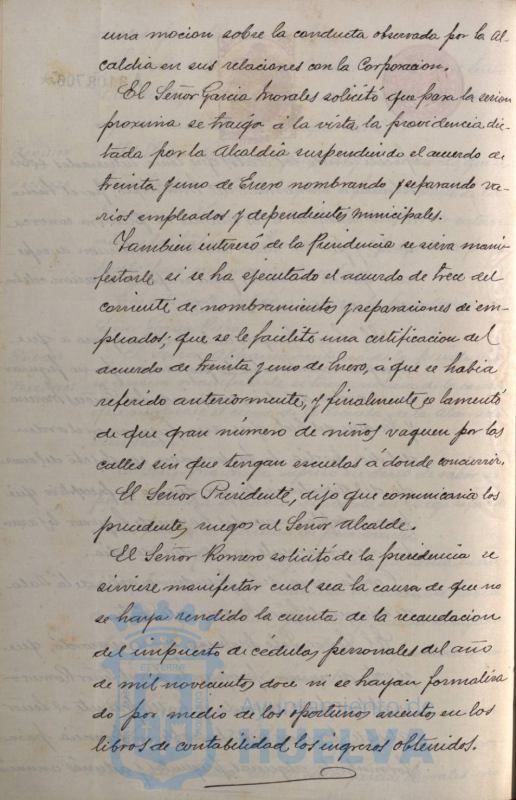 una mocion sobre la conducta observada por la Al-
caldia en sus relaciones con la Corporacion.
El Señor Garcia Morales solicitó que para la sesion
proxima se traiga á la vista la providencia dic-
tada por la Alcaldia suspendiendo el acuerdo de
treinta y uno de Enero nombrando y separando va-
rios empleados y dependientes municipales.
Tambien interesó de la Presidencia se sirva mani-
festarle si se ha ejecutado el acuerdo de trece del
corriente de nombramientos y separaciones de em-
pleados; que se le facilite una certificacion del
acuerdo de treinta y uno de Enero, á que se habia
referido anteriormente, y finalmente se lamentó
de que gran número de niños vaguen por las
calles sin que tengan escuelas á donde concurrir.
El Señor Presidente, dijo que comunicaria los
precedentes ruegos al Señor Alcalde.
El Señor Romero solicitó de la presidencia se
sirviese manifestar cual sea la causa de que no
se haya rendido la cuenta de la recaudacion
del impuesto de cédulas personales del año
de mil novecientos doce ni se hayan formaliza
do por medio de los oportunos asientos en los
libros de contabilidad los ingresos obtenidos.
Ayuntamiento de
HUELVA